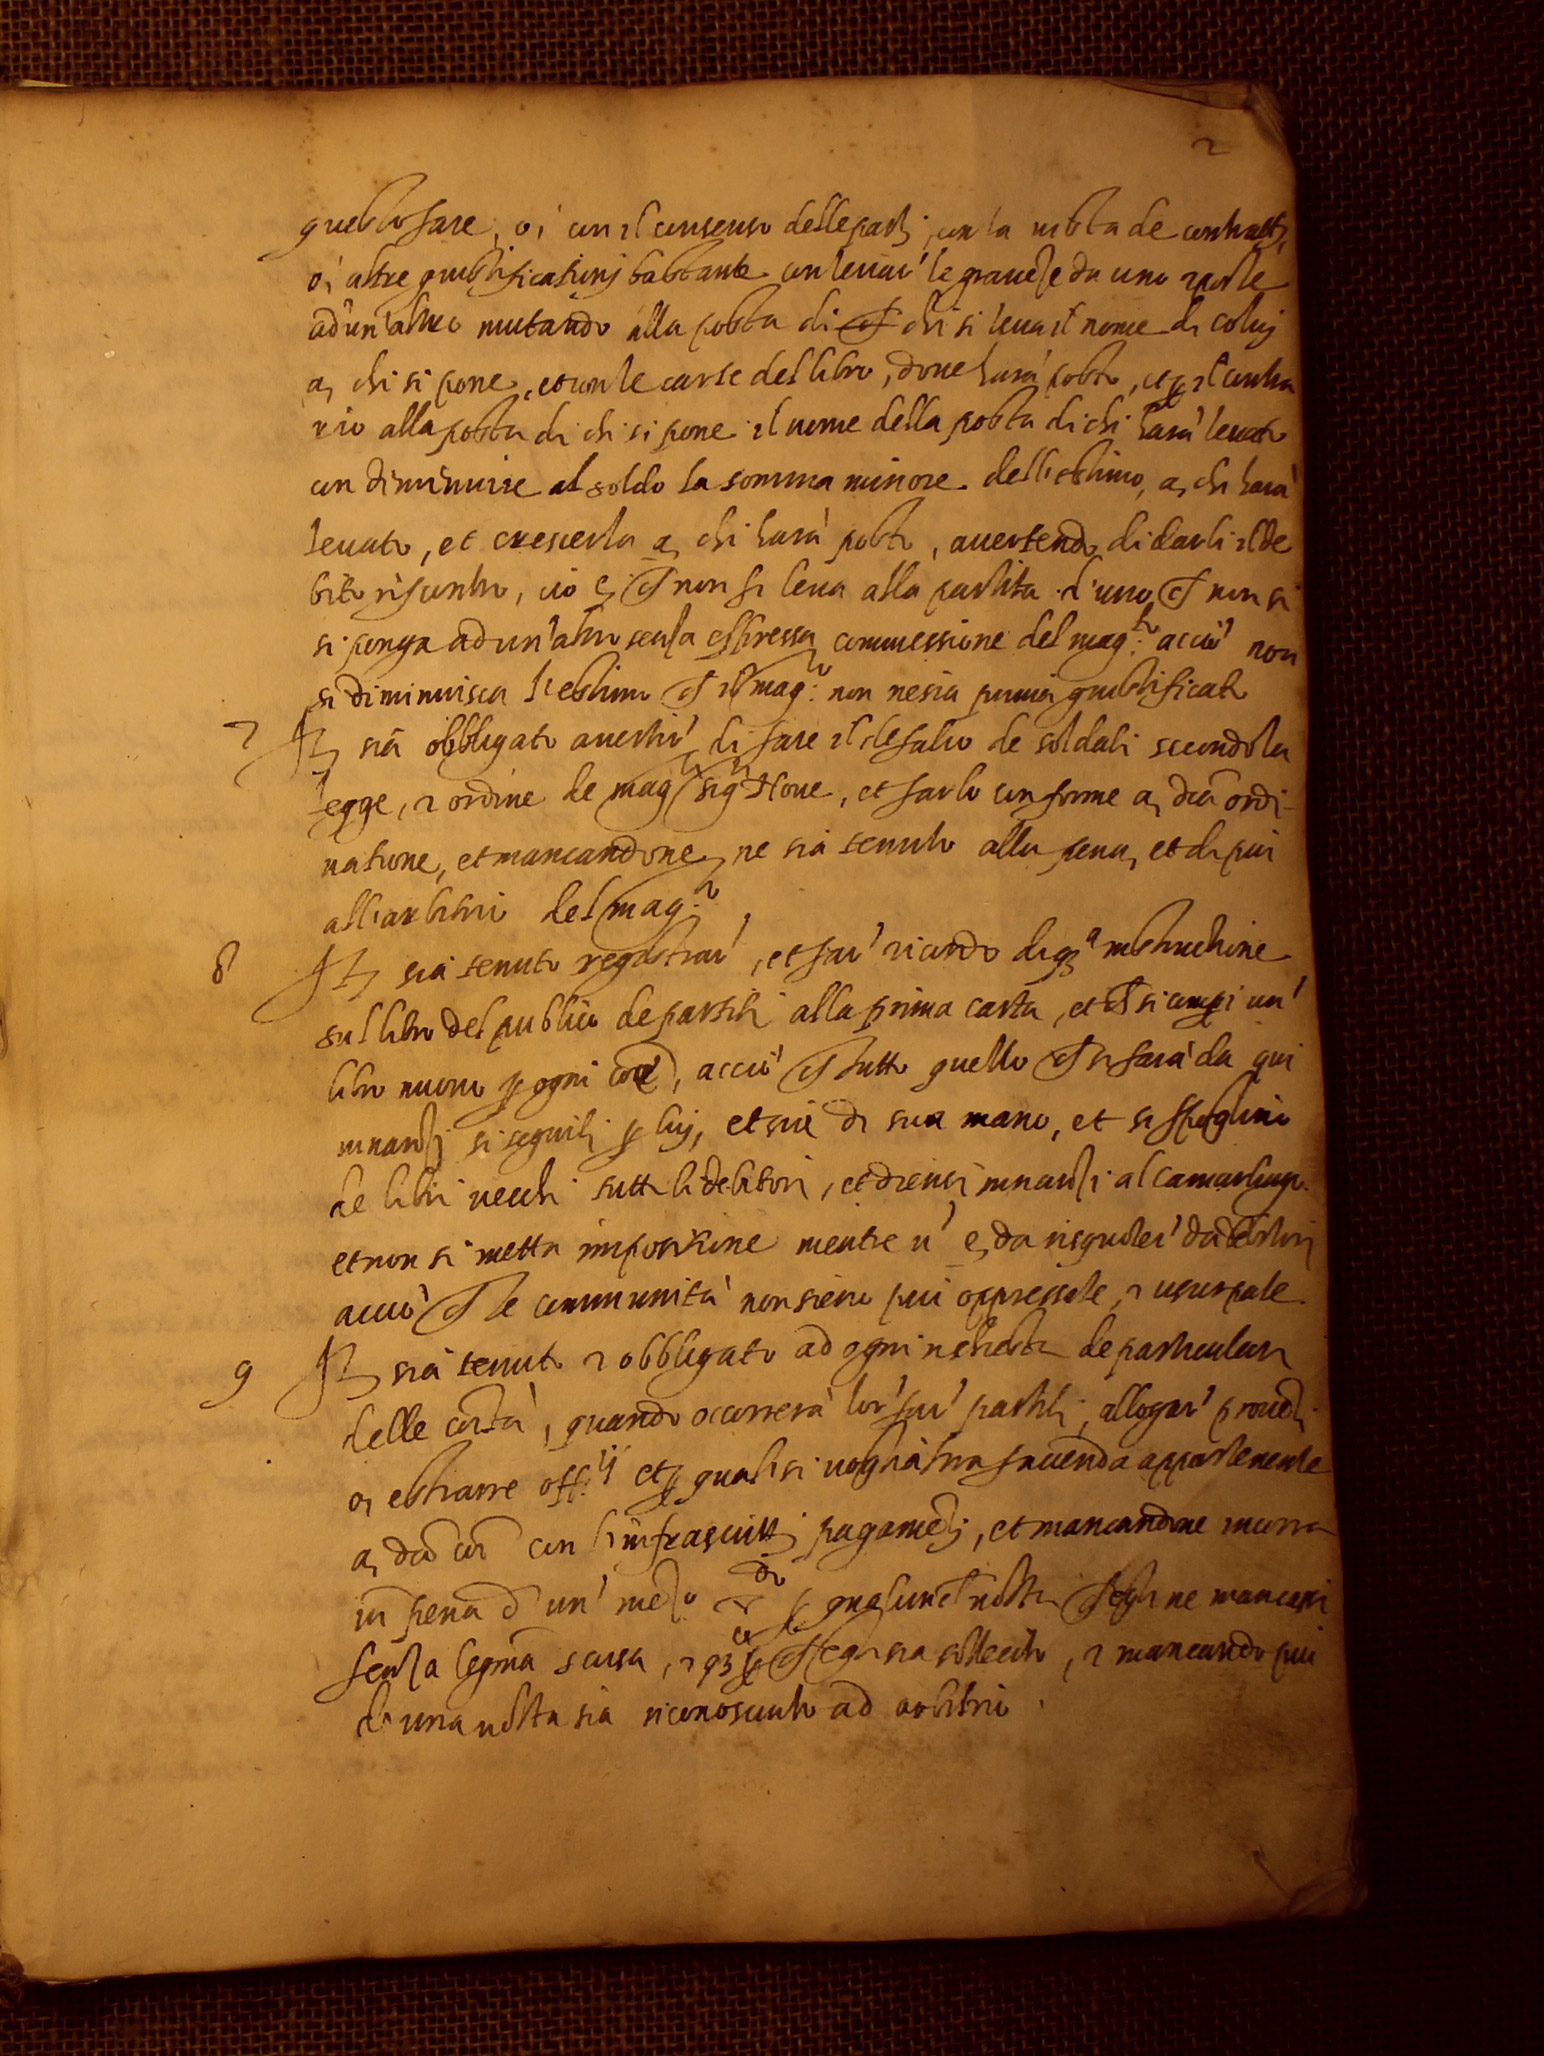 2
questo fare, ò con il consenso delle parti, con la vista de contratti,
ò altre giustificationi bastante con levar' le gravese da uno et porle
ad un'altro mutando alla posta di chi si leva il nome di coluj
a, chi si pone, et con le carte del libro, dove harà posto, et il contra
rio alla posta di chi si pone il nome della posta di chi harà levato
con diminuire al soldo la somma minore dell'estimo, a, chi harà
levato, et crescerla a, chi harà posto, avertendo di darli il de
bito riscontro, cio è, non si leva alla partita d'uno non si
si ponga ad un'altro senza espressa commessione del mag:to acciò non
si diminuisca l'estimo il mag:to non ne sia prima giustificato
7 It, sia obbligato avertir' di fare il defalco de soldati secondo la
legge, et ordine de mag:ci sig:ri Nove, et farlo conforme a, dca ordi-
natione, et mancandone, ne sia tenuto alla pena, et di piu
all'arbitrio del mag:to
8 It, sia tenuto registrar', et far' ricordo di qa instruttione
sul libro del publico de partiti alla prima carta, et si compi un'
libro nuovo p ogni, acciò tutto quello si farà da qui
innanzi si seguiti p luj, et sia di sua mano, et si spoglino
de libri vecchi tutti li debitori, et diensi innanzi al camarlingo
et non si metta impositione mentre v' è, da risquoter' da debitori
acciò le communità non sieno piu oppressate, et usurpate.
9 It, sia tenuto et obbligato ad ogni richiesta de particulari
delle cõità, quando occorrerà lor' far' partiti, allogar'
o, estrarre off:ij et p qual si voglia altra facenda appartenente
a, dca con l'infrascritti pagamti, et mancandone incorra
in pena d' un' mezo p qualunche volta ne mancassi
senza legma scusa, et sia sollecito, et mancando piu
di una volta sia riconosciuto ad arbitrio.